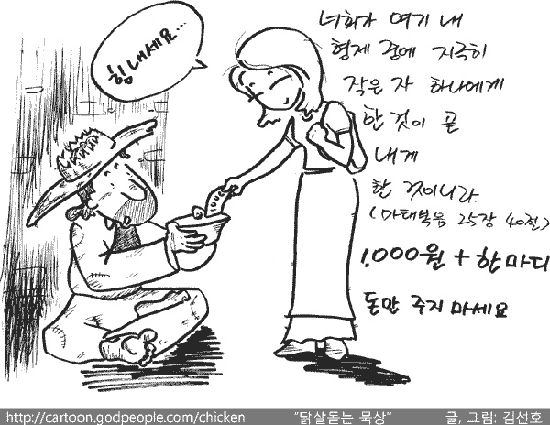 힘내세요...
너희가 여기 내
형제 중에 지극히
작은 자 하나에게
한 것이 곧
내게
한 것이니라
(마태복음 25장 40절)
1,000원 + 한마디
돈만 주지 마세요
http://cartoon.godpeople.com/chicken "닭살돋는 묵상" 글, 그림: 김선호